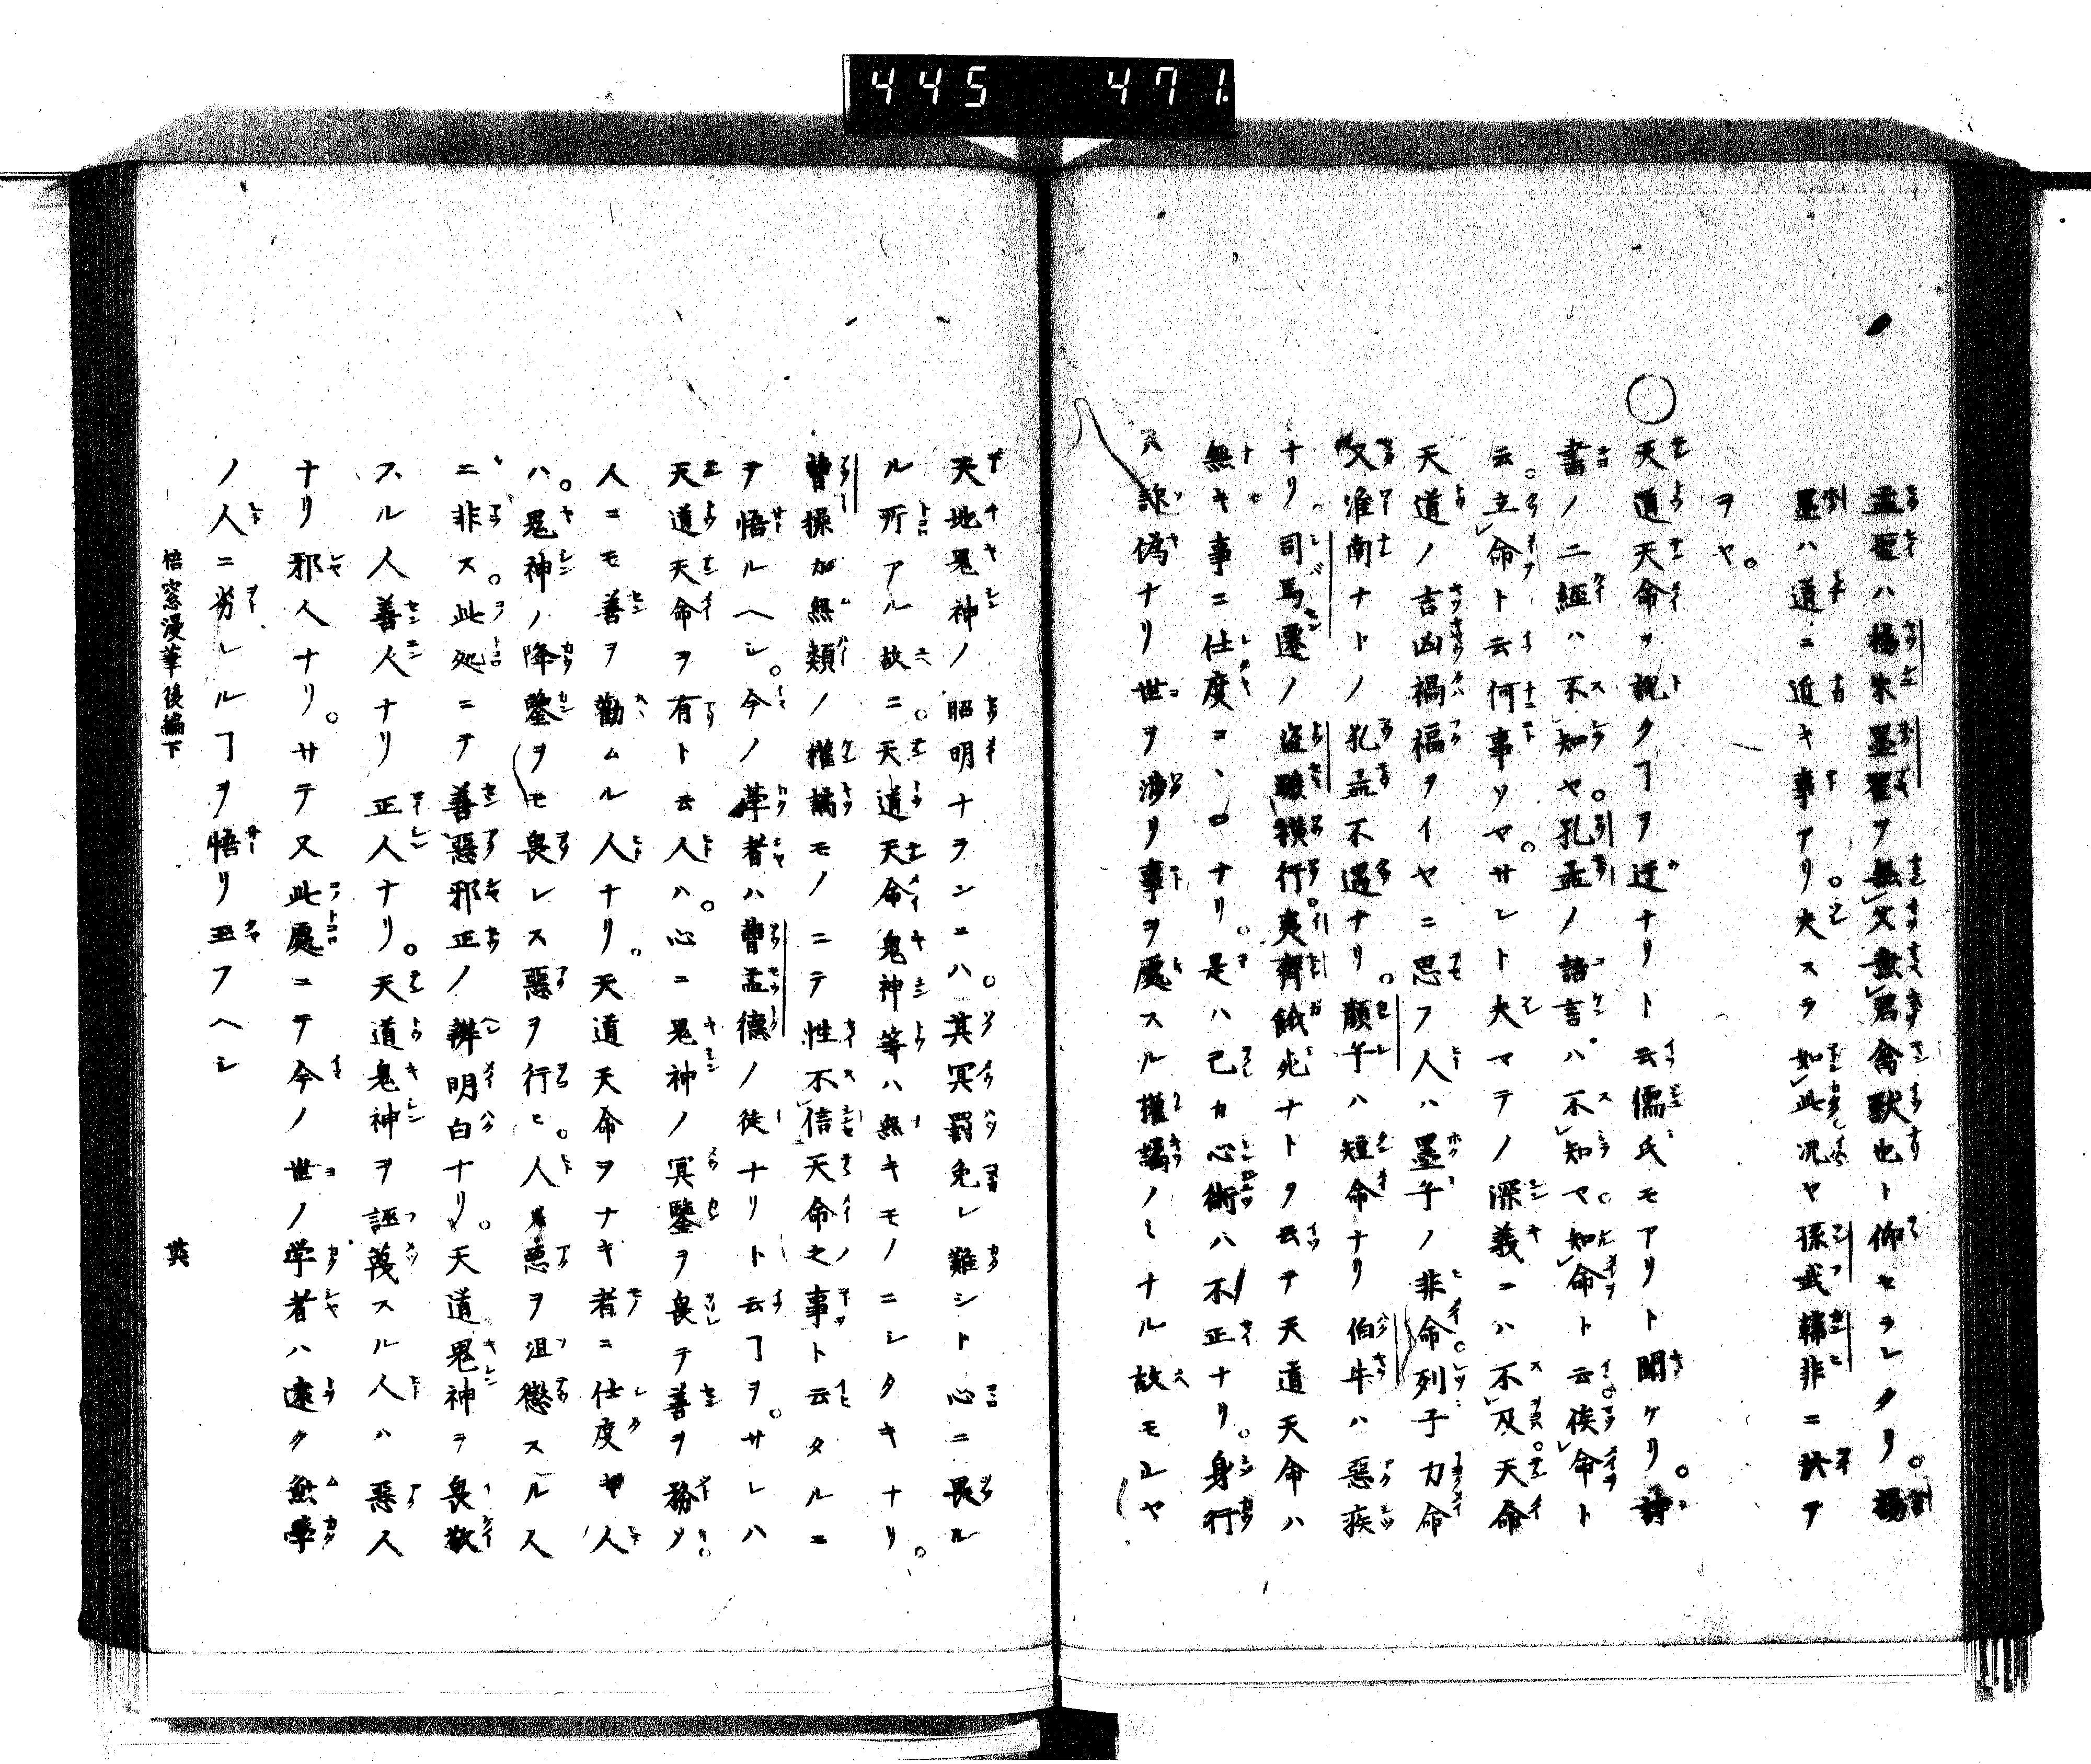 445 471.
孟軻ハ楊朱墨翟ヲ無父無君禽獣也ト仰セラレタリ。楊
墨ハ道ニ近キ事アリ。夫スラ如此況ヤ孫武韓非ニ於ア
ヲヤ。
○天道天命ヲ説クヿヲ迂ナリト云儒氏モアリト聞ケリ。詩
書ノ二経ハ不知ヤ。孔孟ノ語言ハ不知ヤ。知命ト云。俟命ト
云。立命ト云何事ソヤ。サレト夫マテノ深義ニハ不及。天命
天道ノ吉凶禍福ヲイヤニ思フ人ハ墨子ノ非命。列子力命
又淮南ナトノ孔孟不遇ナリ。顔子ハ短命ナリ伯牛ハ悪疾
ナリ。司馬遷ノ盗跖横行。夷齊餓死ナトヲ云テ天道天命ハ
無キ事ニ仕度コヽロナリ。是ハ己カ心術ハ不正ナリ。身行
ハ詐偽ナリ世ヲ渉リ事ヲ處スル權譎ノミナル故モシヤ
天地鬼神ノ昭明ナランニハ。其冥罰免レ難シト心ニ畏ル
ル所アル故ニ。天道天命鬼神等ハ無キモノニシタキナリ。
曹操如無類ノ權譎モノニテ性不信天命之事ト云タルニ
ヲ悟ルヘシ。今ノ革者ハ曹孟德ノ徒ナリト云ヿヲ。サレハ
天道天命ヲ有ト云人ハ。心ニ鬼神ノ冥鑒ヲ畏テ善ヲ務メ。
人ニモ善ヲ勸ムル人ナリ。天道天命ヲナキ者ニ仕度キ人
ハ。鬼神ノ降鑒ヲモ畏レス惡ヲ行ヒ。人ノ悪ヲ沮懲スル人
ニ非ス。此処ニテ善惡邪正ノ辨明白ナリ。天道鬼神ヲ畏敬
スル人善人ナリ正人ナリ。天道鬼神ヲ誣蔑スル人ハ惡人
ナリ邪人ナリ。サテ又此處ニテ今ノ世ノ学者ハ遠ク無學
ノ人ニ劣レルヿヲ悟リ玉フヘシ
梧窓漫筆後編下